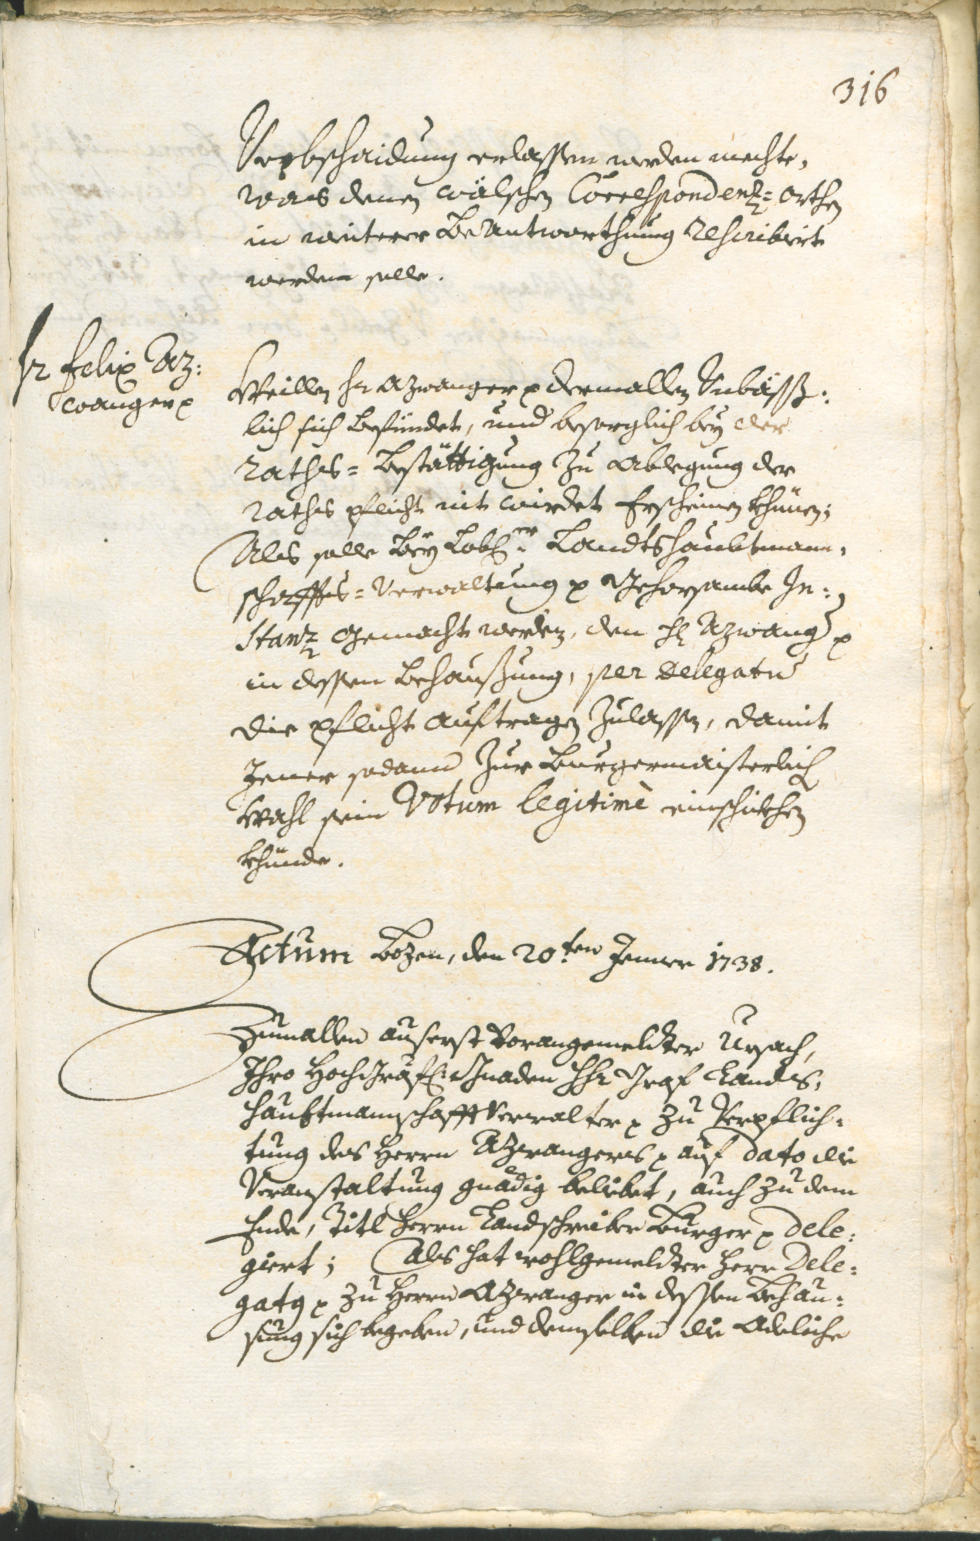 316
Verbschaidung erlassen werden mechte,
was denen wälschen Correspondenz= orthen
in weiterer Beantworthung rescribirt
werden solle.
Hr Felix Az:
wanger
Weillen Hr Azwanger dermallen Unbäß:
lich sich befindet, und besorglich bey der
Raths= Bestättigung zu Ablegung der
Raths pflicht nit wirdet Erscheinen khünen;
Als solle bey Lobl: Landtshaubtmann:
schaffts= Verwaltung gehorsambe In:
stanz gemacht werden, den H: Azwang
in dessen Behaußung, per Delegatu
die pflicht auftragen zulassen, damit
Jener sodann zur Burgermaisterlich
Wahl sein Votum legitimè einschickhen
khünde.
Actum Bozen, den 20.ten Jenner 1738.
Zumallen auserst vorangemeldter Ursach,
Ihro HochGräfl: Gnaden HH: Graf Landts:
haubtmannschafft Verwalter zu Verpflich:
tung des Herrn Azwangers auf dato die
Veranstaltung gnädig beliebet, auch zu dem
Ende, Titl Herrn Landtschreiber Burger dele:
giert; Als hat wohlgemeldter Herr Dele:
gatg zu Herrn Azwanger in dessen Behau:
sung sich begeben, und demselben die Adeliche